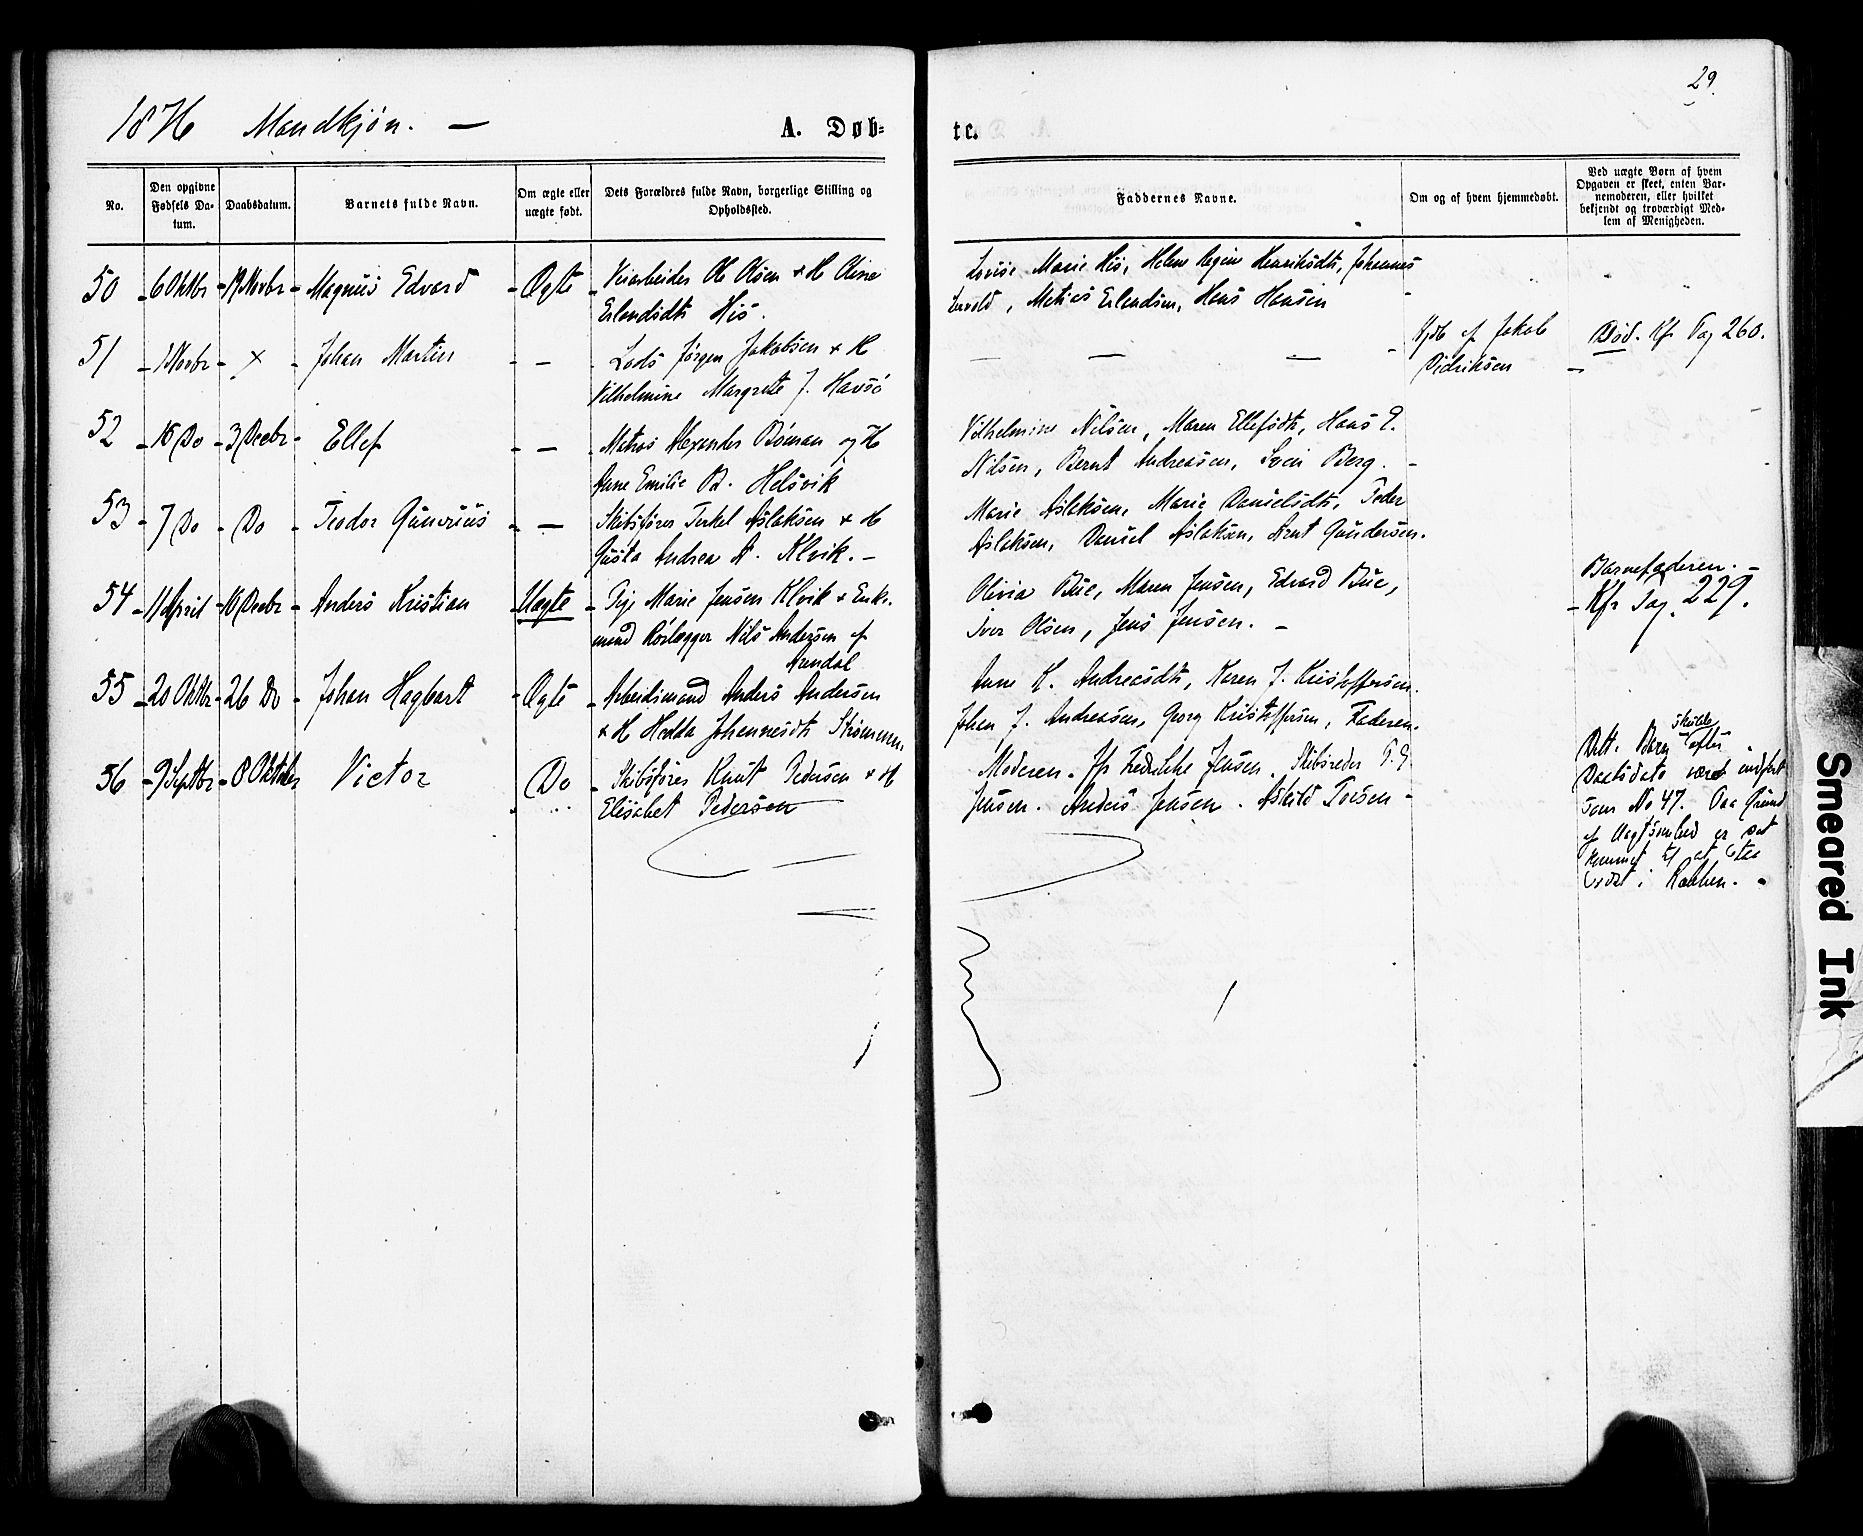 29.
1876 Mandkjøn. —
A. Døb-
te.
No.
Den opgivne
Fødsels Da-
tum.
Daabsdatum.
Barnets fulde Navn.
Om ægte eller
uægte født.
Dets Forældres fulde Navn, borgerlige Stilling og
Opholdssted.
Faddernes Navne.
Om og af hvem hjemmedøbt.
Ved uægte Børn af hvem
Opgaven er skeet, enten Bar-
nemoderen, eller hvilket
bekjendt og troværdigt Med-
lem af Menigheden.
50 6 Oktbr 19 Novbr Magnus Edvard Ægte Veiarbeider Ole Olsen + H Oline
Erlendsdtr His.
Lovise Marie His, Helene Regine Henriksdtr, Johannes
Matias Erlendsen, Hans Hansen
51 1 Novbr × Johan Martin — Lods Jørgen Jakobsen + H
Vilhelmine Margrete J. Havsø
— — —
Hjdb af Jakob
Didriksen
Død. Kfr Pag 260.
52 16 Do 3 Decbr Ellef — Matros Alexander Boman og H
Anne Emilie B. Helsvik
Vilhelmine Nilsen, Maren Ellefsdtr, Hans E.
Nilsen, Bernt Andreasen, Svein Berg.
53 7 Do Do Teodor Gunerius — Skibsfører Terkel Aslaksen + H
Gusta Andrea A. Klvik. —
Marie Aslaksen, Marie Danielsdtr, Peder
Aslaksen, Daniel Aslaksen, Arnt Gundersen.
54 11 April 10 Decbr Anders Kristian Uægte Pige Marie Jensen Klvik + Enke-
mand Nils Andersen af
Arendal
Olivia Bue, Maren Jensen, Edvard Bue,
Iver Olsen, Jens Jensen. —
Barnefaderen. —
Kfr Pag. 229.
55 20 Oktbr 26 Do Johan Hagbart Ægte Arbeidsmand Anders Andersen
+ H Hedda Johannesdtr Strømmen.
Anne K. Andreasdtr, Karen J. Kristoffersen.
Johan J. Andreasen, Georg Kristoffersen, Faderen.
56 9 Septbr 8 Oktober Victor Do Skibsfører Knut Pedersen + H
Elisabet Pedersen
Moderen. Jfr Fredrikke Jensen. Skibsreder P. G
Jensen. Anders Jensen. Askild Toesen —
Dette Barn skulde efter
Daabsdato været indført
som No 47. Paa Grund
af Uagtsomhed er det
kommet til at staa
sidst i Rækken.
Smeared Ink